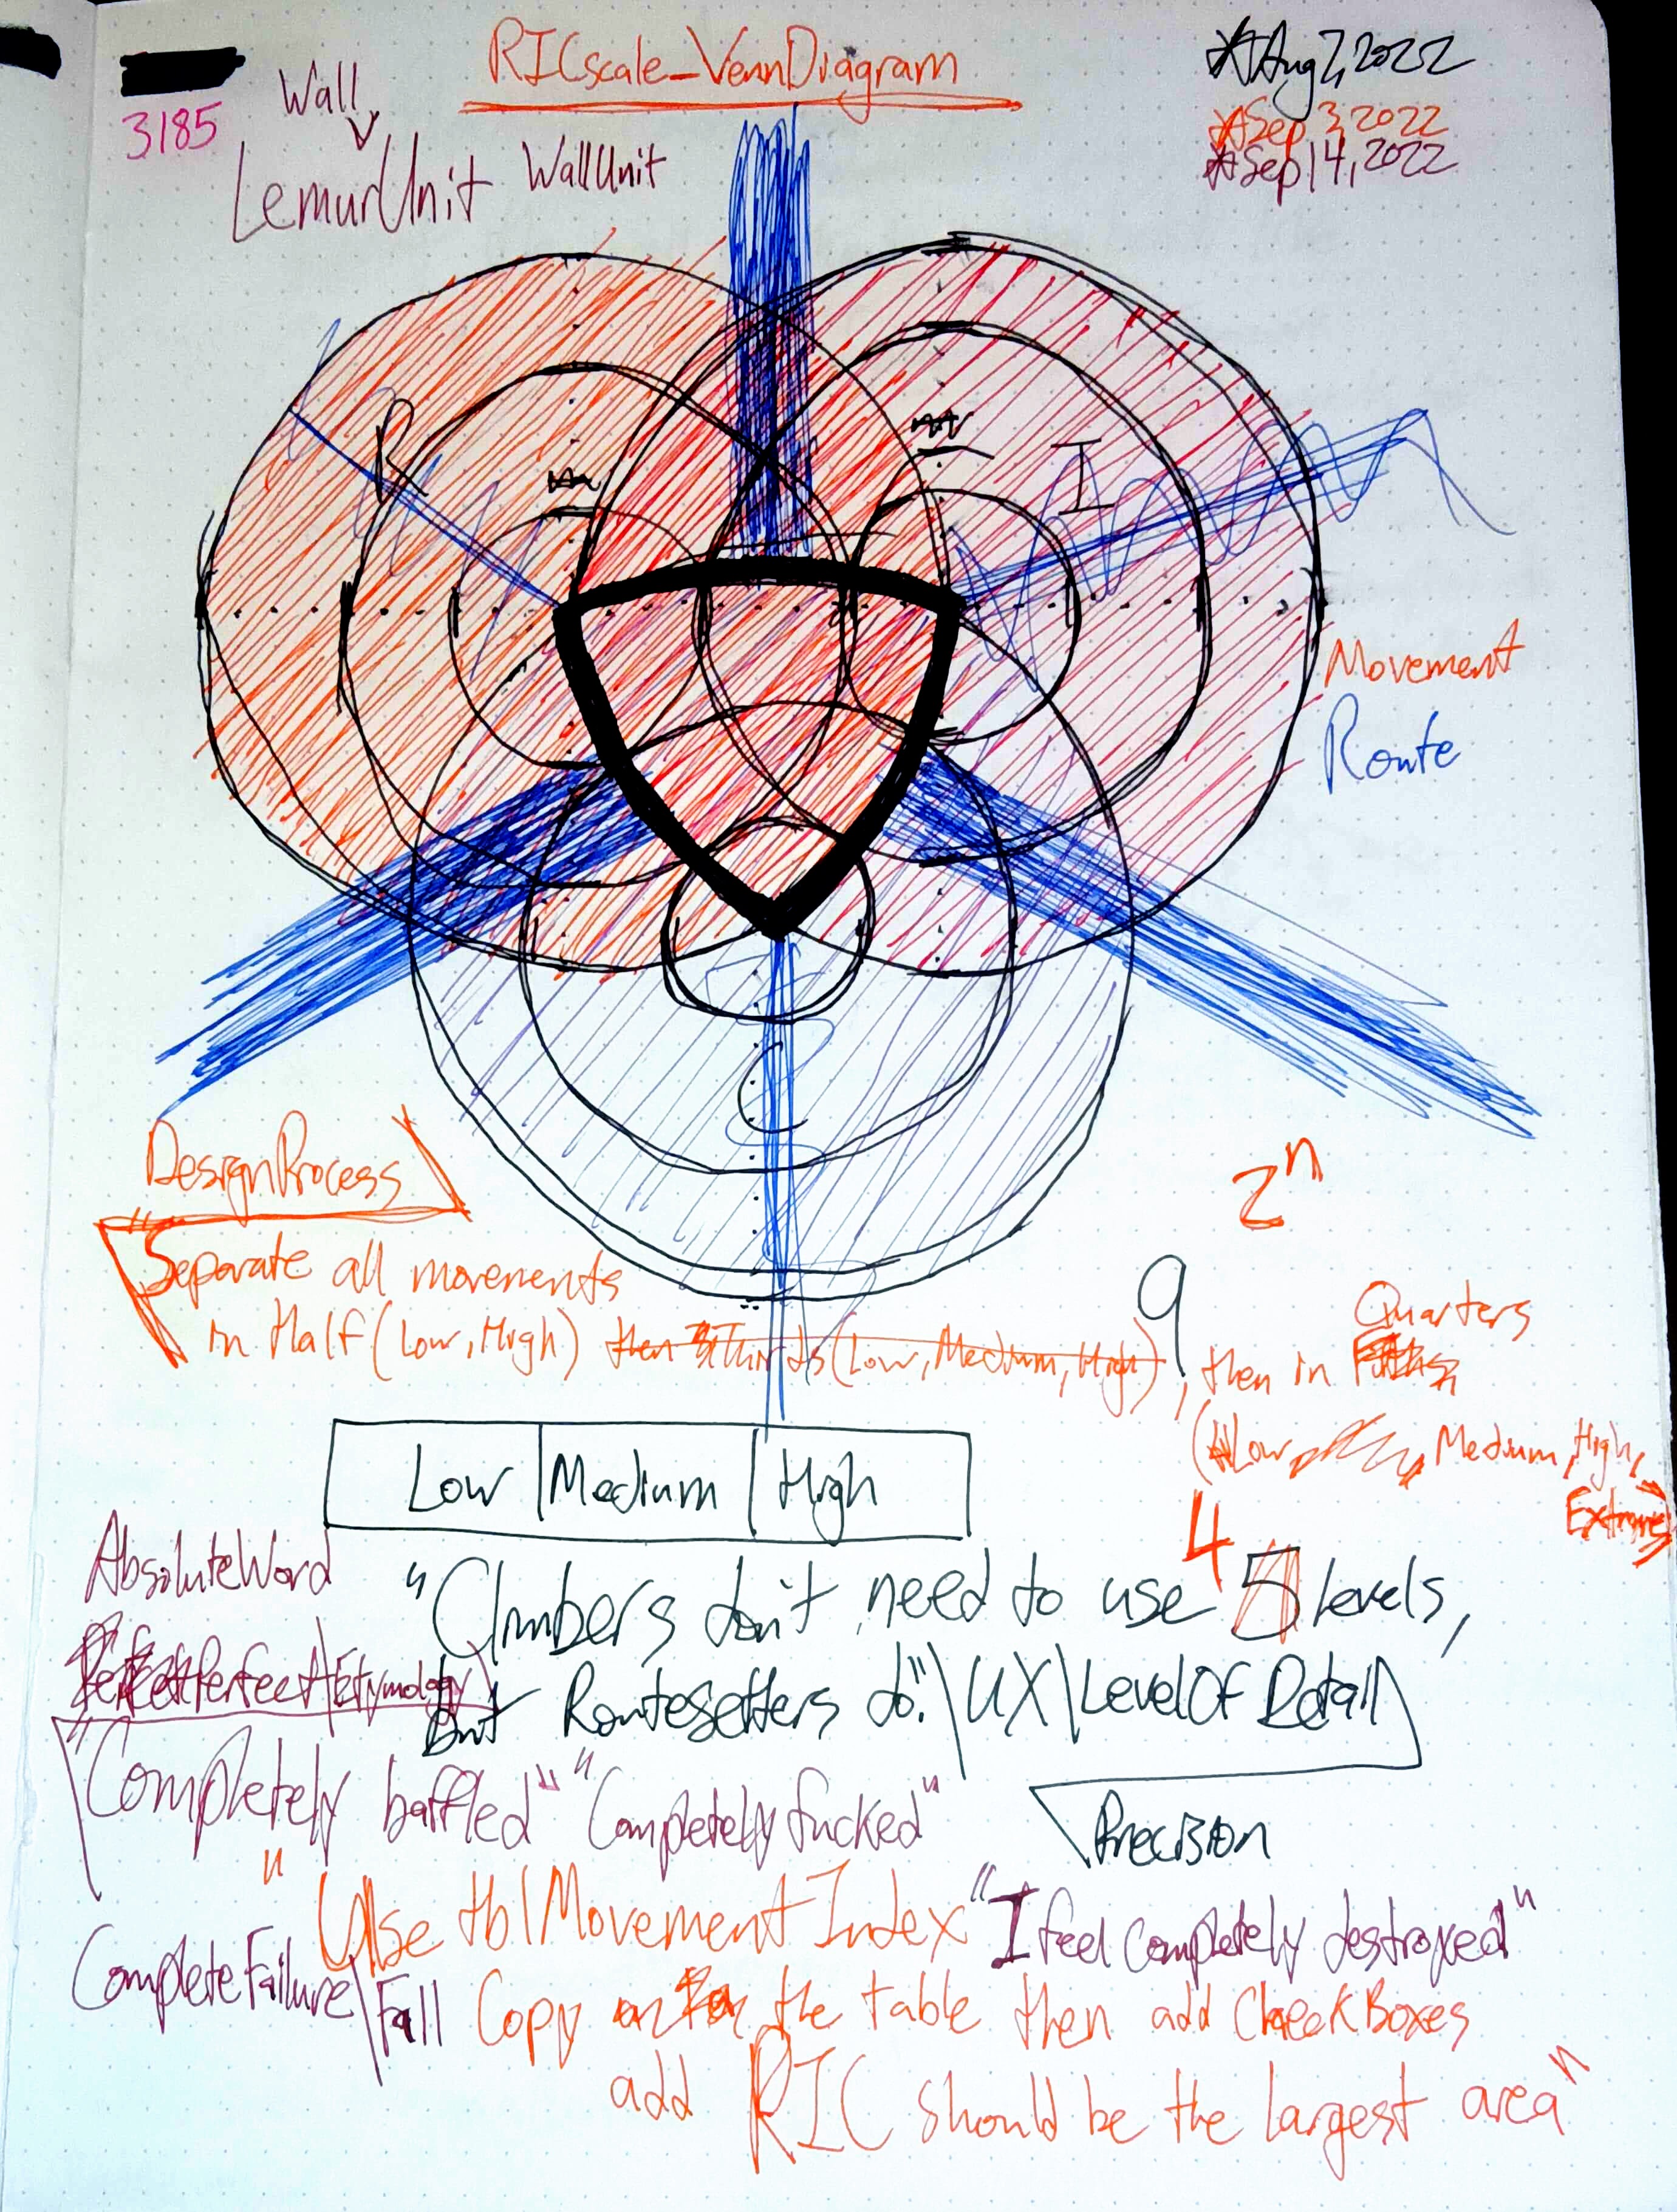 RICscale_VennDiagram
Aug 7, 2022
Sep 3, 2022
Sep 14, 2022
3185
Wall
LemurUnit WallUnit
R
I
Movement
Route
C
DesignProcess
2^n
"Separate all movements
in Half (Low, High) then in Thirds (Low, Medium, High), then in Quarters
9
(Low, Medium, High, Extreme)
Low | Medium | High
AbsoluteWord
"Climbers don't need to use 4 5 levels,
but Routesetters do."\UX\LevelOfDetail
Perfect\Etymology
"Completely baffled" "Completely fucked"
Precision
"Use tblMovementIndex "I feel completely destroyed"
CompleteFailure\Fall Copy the table then add CheckBoxes
add RIC should be the largest area"